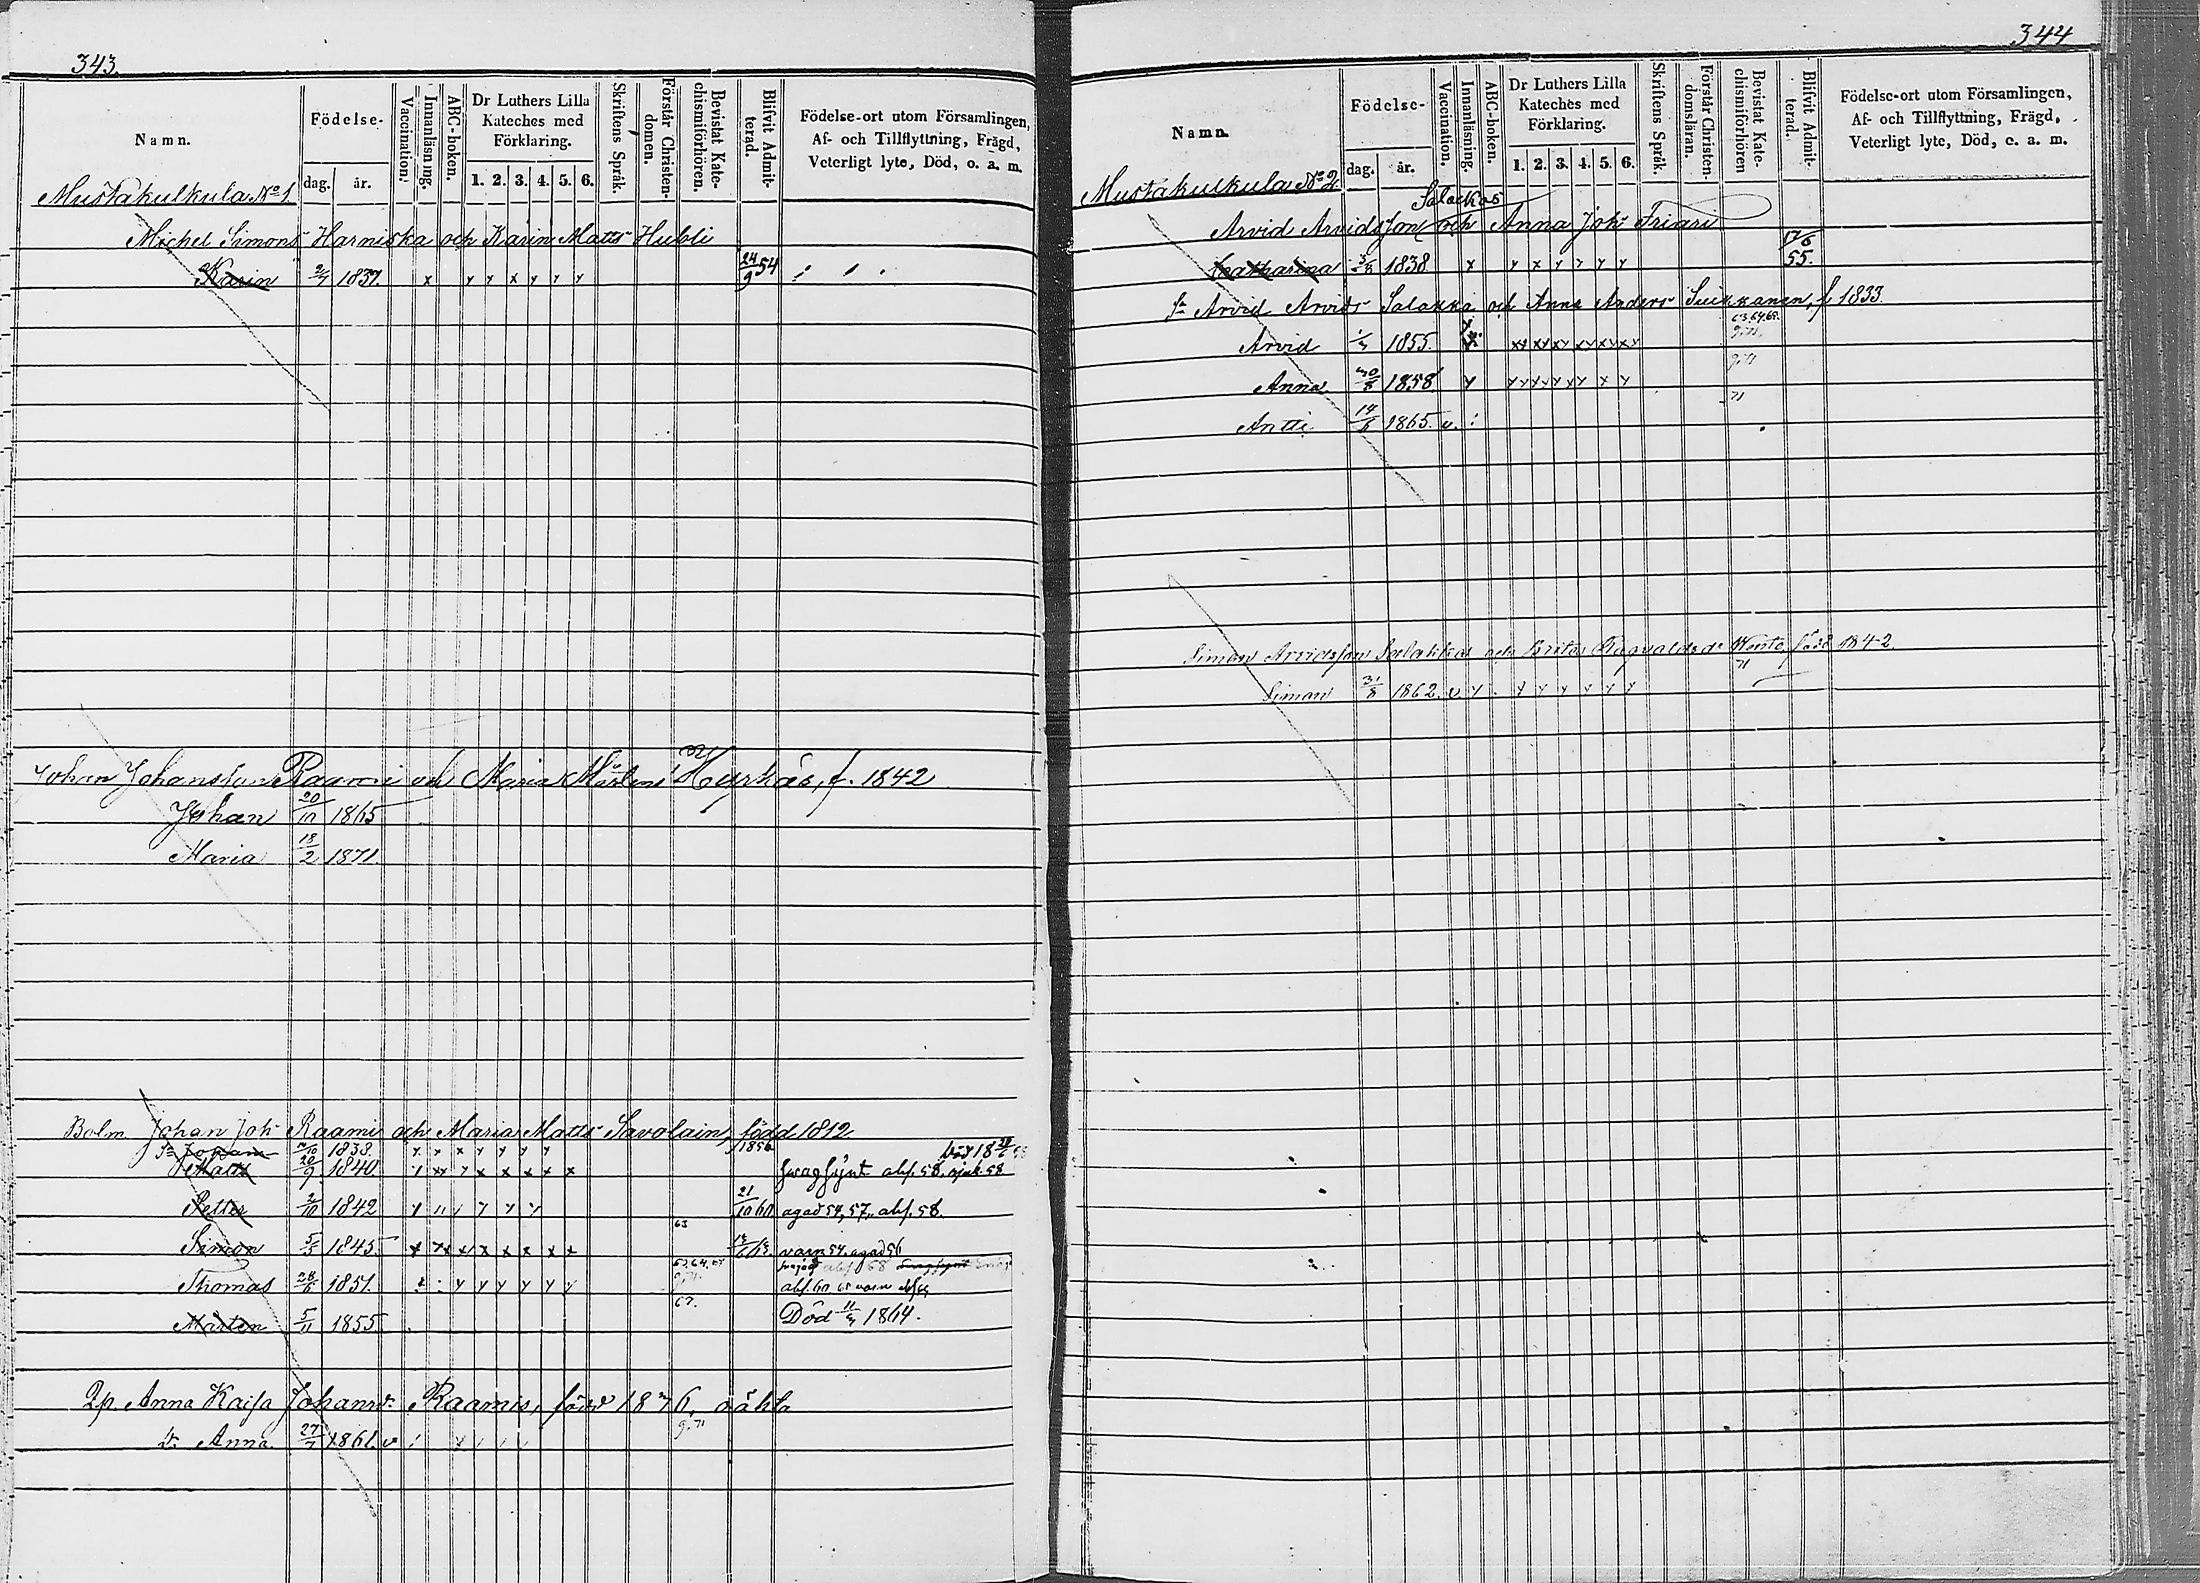 343.
Namn.
Födelse-
dag.
år.
Vaccination.
Innanläsning.
ABC-boken.
Dr Luthers Lilla
Kateches med
Förklaring.
1. 2. 3. 4. 5. 6.
Skriftens Språk.
Förstår Christen-
domen.
Bevistat Kate-
chismiförhören.
Blifvit Admit-
terad.
Födelse-ort utom Församlingen,
Af- och Tillflyttning, Frägd,
Veterligt lyte, Död, o. a. m.
Mustakulkula No 1.
Michel Simons Harniska och Karin Matts Hubli
Karin 1837. x y y x y y y 24/9 54
Johan Johansson Raami och Maria Mårtens Hyrkäs, f. 1842
Johan 20/10 1865
Maria 18/2 1871
Bolm Johan Joh Raami och Maria Matts Savolain, född 1812
Sn Johan /10 1838. 1856
Matts 20/9 1840. svagsynt abs. 58. sjuk. 58
Petter 2/10 1842 21/10 60 agad 54, 57, abs. 58.
63
Simon 5/5 1845. 63. varn 54. agad 56
63,64,
Thomas 28/6 1851. abs. 60
67.
Mårten 5/11 1855. Död 11/ 1864.
Qp. Anna Kaisa Johansdr Raamis, född 1836, oäkta
g. 71
dr Anna 27/7 1861. v
344
Namn.
Födelse-
dag.
år.
Vaccination.
Innanläsning.
ABC-boken.
Dr Luthers Lilla
Kateches med
Förklaring.
1. 2. 3. 4. 5. 6.
Skriftens Språk.
Förstår Christen-
domsläran.
Bevistat Kate-
chismiförhören
Blifvit Admit-
terad.
Födelse-ort utom Församlingen,
Af- och Tillflyttning, Frägd,
Veterligt lyte, Död, o. a. m.
Mustakulkula No 2.
Salackas
Arvid Arvidsson och Anna Joh Friari
Catharina 1838. x y x y y y y 17/6 55.
Sn Arvid Arvids Salakka och Anna Anders Suikkanen, f 1833.
63,64,68.
Arvid 1855. xy xy xy xy xy xy
g. 71
Anna 30/8 1858
71
Antti 14/6 1865. v.
Simon Arvidsson Salakkas och Brita Ragvaldsdr Wento född 1842.
71
Simon 31/8 1862. v y y y y y y y